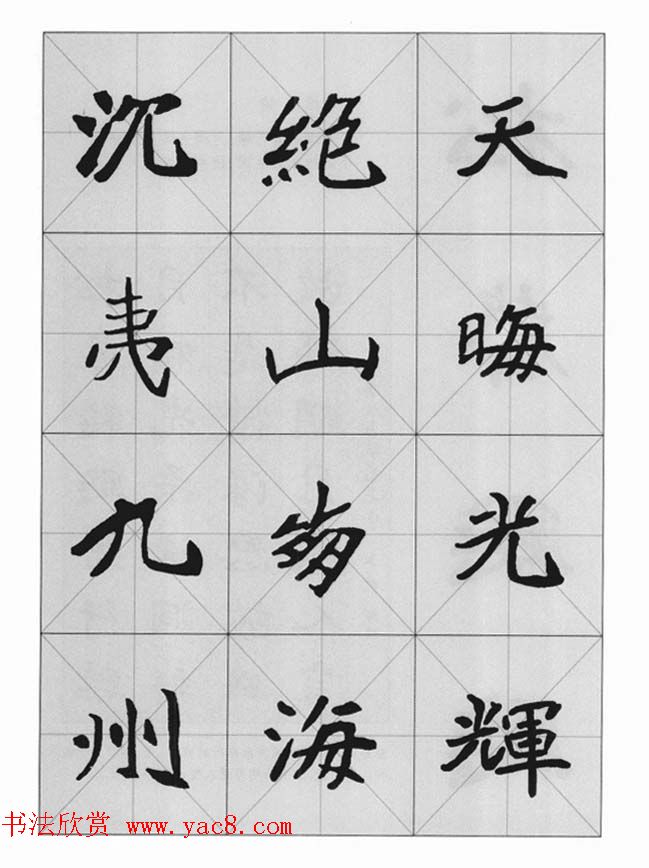 天晦光輝
絶山海
沉夷九州
书法欣赏 www.yac8.com